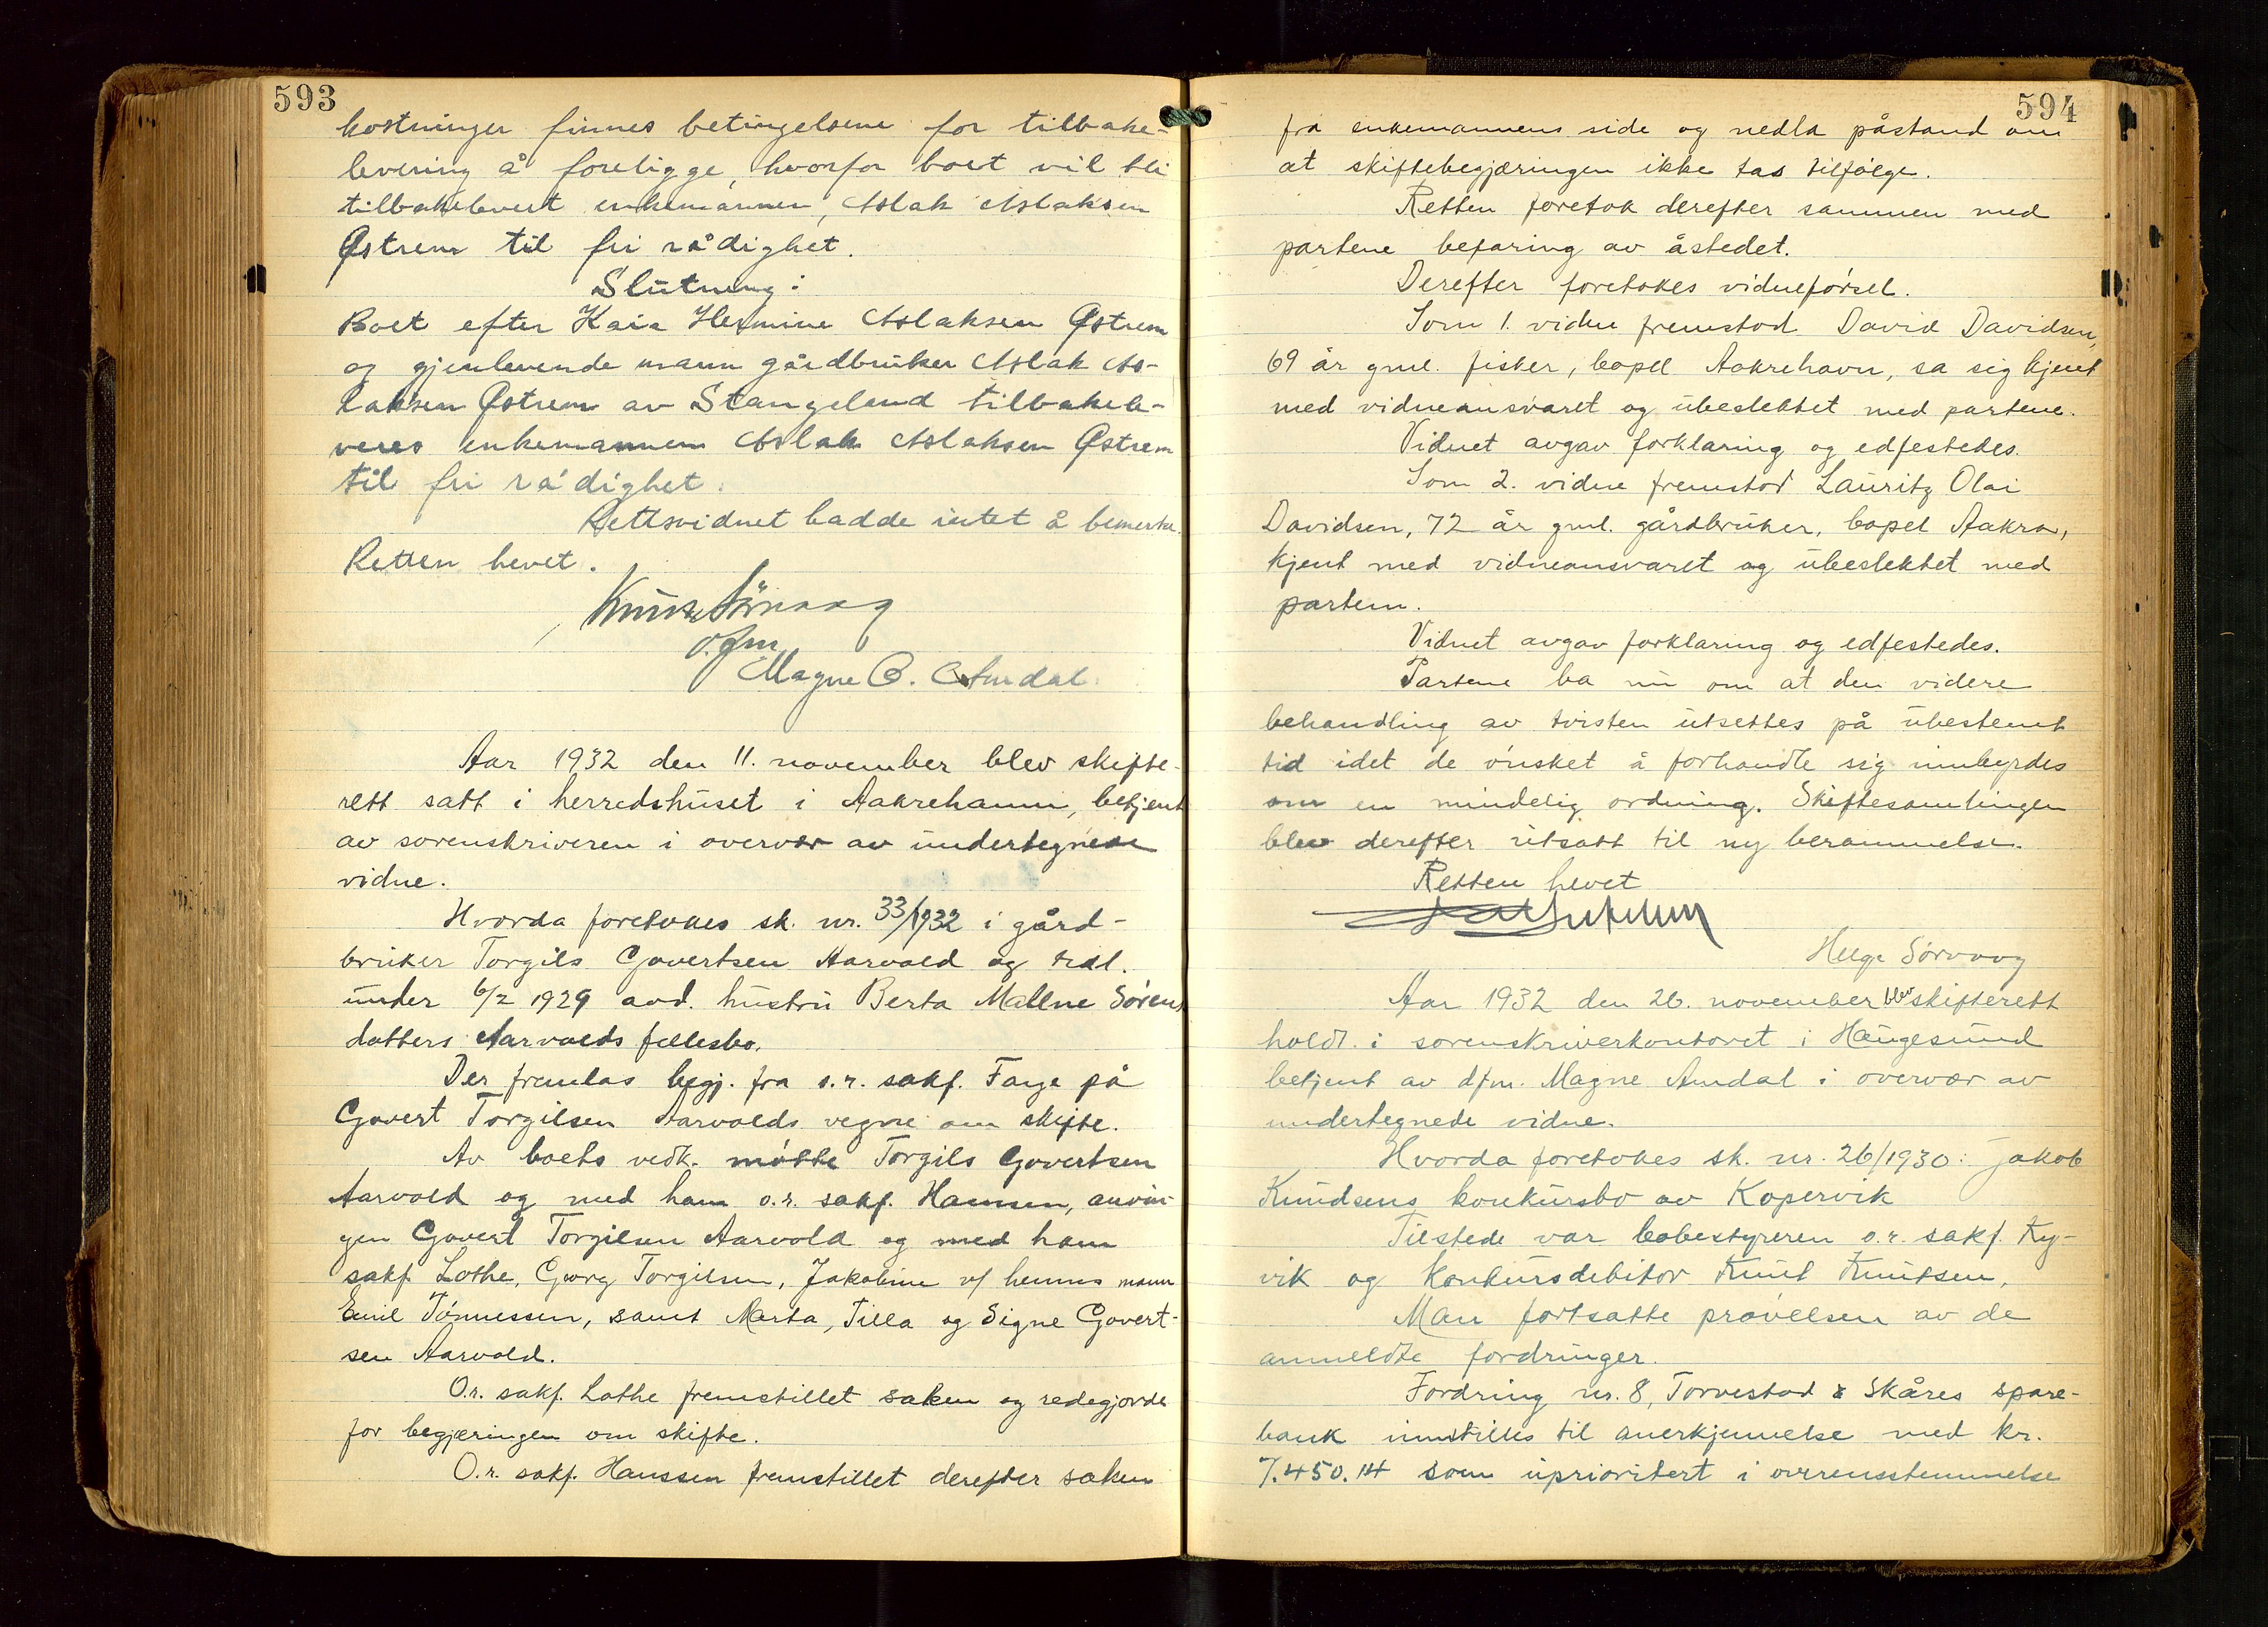 593
kostninger finnes betingelsene for tilbake-
levering å foreligge, hvorfor boet vil bli
tilbakelevert enkemannen, Aslak Aslaksen
Østrem til fri rådighet.
Slutning:
Boet efter Kaia Hermine Aslaksen Østrem
og gjenlevende mann gårdbruker Aslak As-
laksen Østrem av Stangeland tilbakele-
veres enkemannen Aslak Aslaksen Østrem
til fri rådighet.
Rettsvidnet hadde intet å bemerke.
Retten hevet.
Magne Amdal
Aar 1932 den 11. november blev skifte-
rett satt i herredshuset i Aakrehamn, betjent
av sorenskriveren i overvær av undertegnede
vidne.
Hvorda foretokes sk. nr. 33/1932 i gård-
bruker Torgils Govertsen Aarvold og
under 6/2 1929 avd. hustru Berta Mallne Sørens
datters Aarvolds fellesbo.
Der fremlas begj. fra o.r. sakf. på
Govert Torgilsen Aarvolds vegne om skifte.
Av boets vedk. møtte Torgils Govertsen
Aarvold og med ham o.r. sakf. Hanssen, arvin-
gen Govert Torgilsen Aarvold og med ham
sakf. Lothe, Georg Torgilsen, Jakobine v/ hennes mann
Emil Tønnessen, samt Marta, Tilla og Signe Govert-
sen Aarvold.
O.r. sakf. Lothe fremstillet saken og redegjorde
for begjæringen om skifte.
O.r. sakf. Hanssen fremstillet derefter saken
594
fra enkemannens side og nedla påstand om
at skiftebegjæringen ikke tas tilfølge.
Retten foretok derefter sammen med
partene befaring av åstedet.
Derefter foretokes vidneførsel.
Som 1. vidne fremstod David Davidsen,
69 år gml. fisker, bopel Aakrehavn, sa sig kjent
med vidneansvaret og ubeslektet med partene.
Vidnet avgav forklaring og edfestedes.
Som 2. vidne fremstod Lauritz Olai
Davidsen, 72 år gml. gårdbruker, bopel Aakra,
kjent med vidneansvaret og ubeslektet med
partene.
Vidnet avgav forklaring og edfestedes.
Partene ba nu om at den videre
behandling av tvisten utsettes på ubestemt
tid idet de ønsket å forhandle sig innbyrdes
om en mindelig ordning. Skiftesamlingen
blev derefter utsatt til ny berammelse.
Retten hevet
Helge Sørvaag
Aar 1932 den 26. november blev skifterett
holdt i sorenskriverkontoret i Haugesund
betjent av dfm. Magne Amdal i overvær av
undertegnede vidne.
Hvorda foretokes sk. nr. 26/1930: Jakob
Knudsens konkursbo av Kopervik
Tilstede var bobestyreren o.r. sakf. Ky-
vik og konkursdebitor Knut Knutsen.
Man fortsatte prøvelsen av de
anmeldte fordringer.
Fordring nr. 8, Torvestad & Skåres spare-
bank innstilles til anerkjennelse med kr.
7.450.14 som uprioritert i overensstemmelse